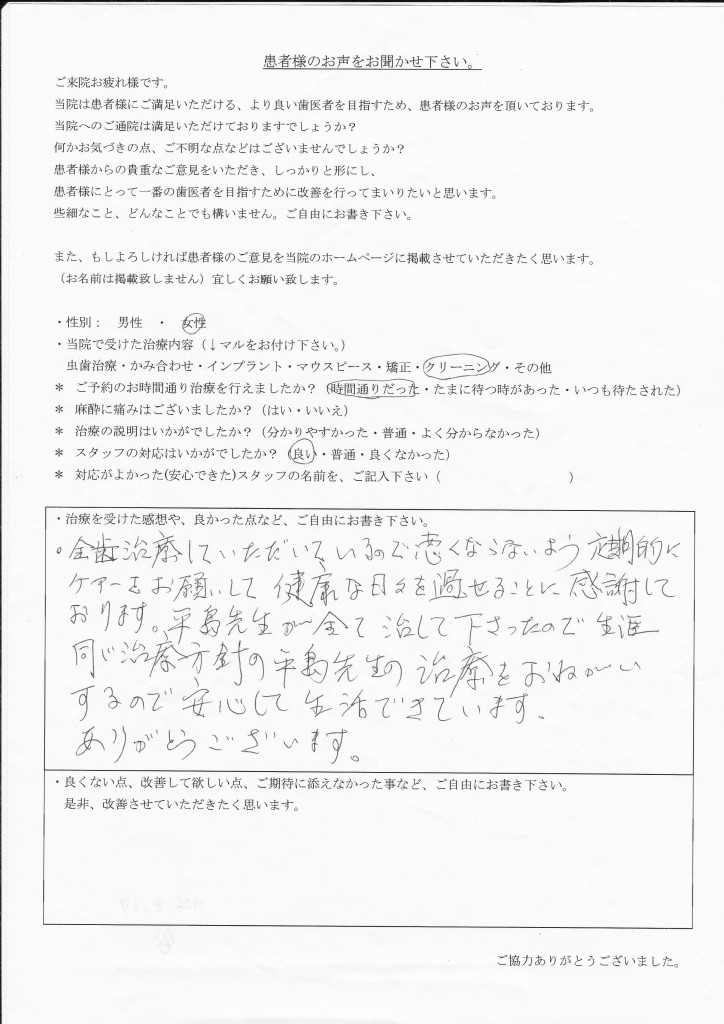 患者様のお声をお聞かせ下さい。
ご来院お疲れ様です。
当院は患者様にご満足いただける、より良い歯医者を目指すため、患者様のお声を頂いております。
当院へのご通院は満足いただけておりますでしょうか?
何かお気づきの点、ご不明な点などはございませんでしょうか?
患者様からの貴重なご意見をいただき、しっかりと形にし、
患者様にとって一番の歯医者を目指すために改善を行ってまいりたいと思います。
些細なこと、どんなことでも構いません。ご自由にお書き下さい。
また、もしよろしければ患者様のご意見を当院のホームページに掲載させていただきたく思います。
(お名前は掲載致しません)宜しくお願い致します。
・性別: 男性 ・ 女性
・当院で受けた治療内容(↓マルをお付け下さい。)
虫歯治療・かみ合わせ・インプラント・マウスピース・矯正・クリーニング・その他
* ご予約のお時間通り治療を行えましたか?(時間通りだった・たまに待つ時があった・いつも待たされた)
* 麻酔に痛みはございましたか?(はい・いいえ)
* 治療の説明はいかがでしたか?(分かりやすかった・普通・よく分からなかった)
* スタッフの対応はいかがでしたか?(良い・普通・良くなかった)
* 対応がよかった(安心できた)スタッフの名前を、ご記入下さい( )
・治療を受けた感想や、良かった点など、ご自由にお書き下さい。
・全歯治療していただいているので悪くならないよう 定期的に
ケアーをお願いして 健康な日々を過せることに感謝して
おります。平島先生が全て治して下さったので生涯
同じ治療方針の平島先生の治療をおねがい
するので安心して生活できています、
ありがとうございます。
・良くない点、改善して欲しい点、ご期待に添えなかった事など、ご自由にお書き下さい。
是非、改善させていただきたく思います。
ご協力ありがとうございました。